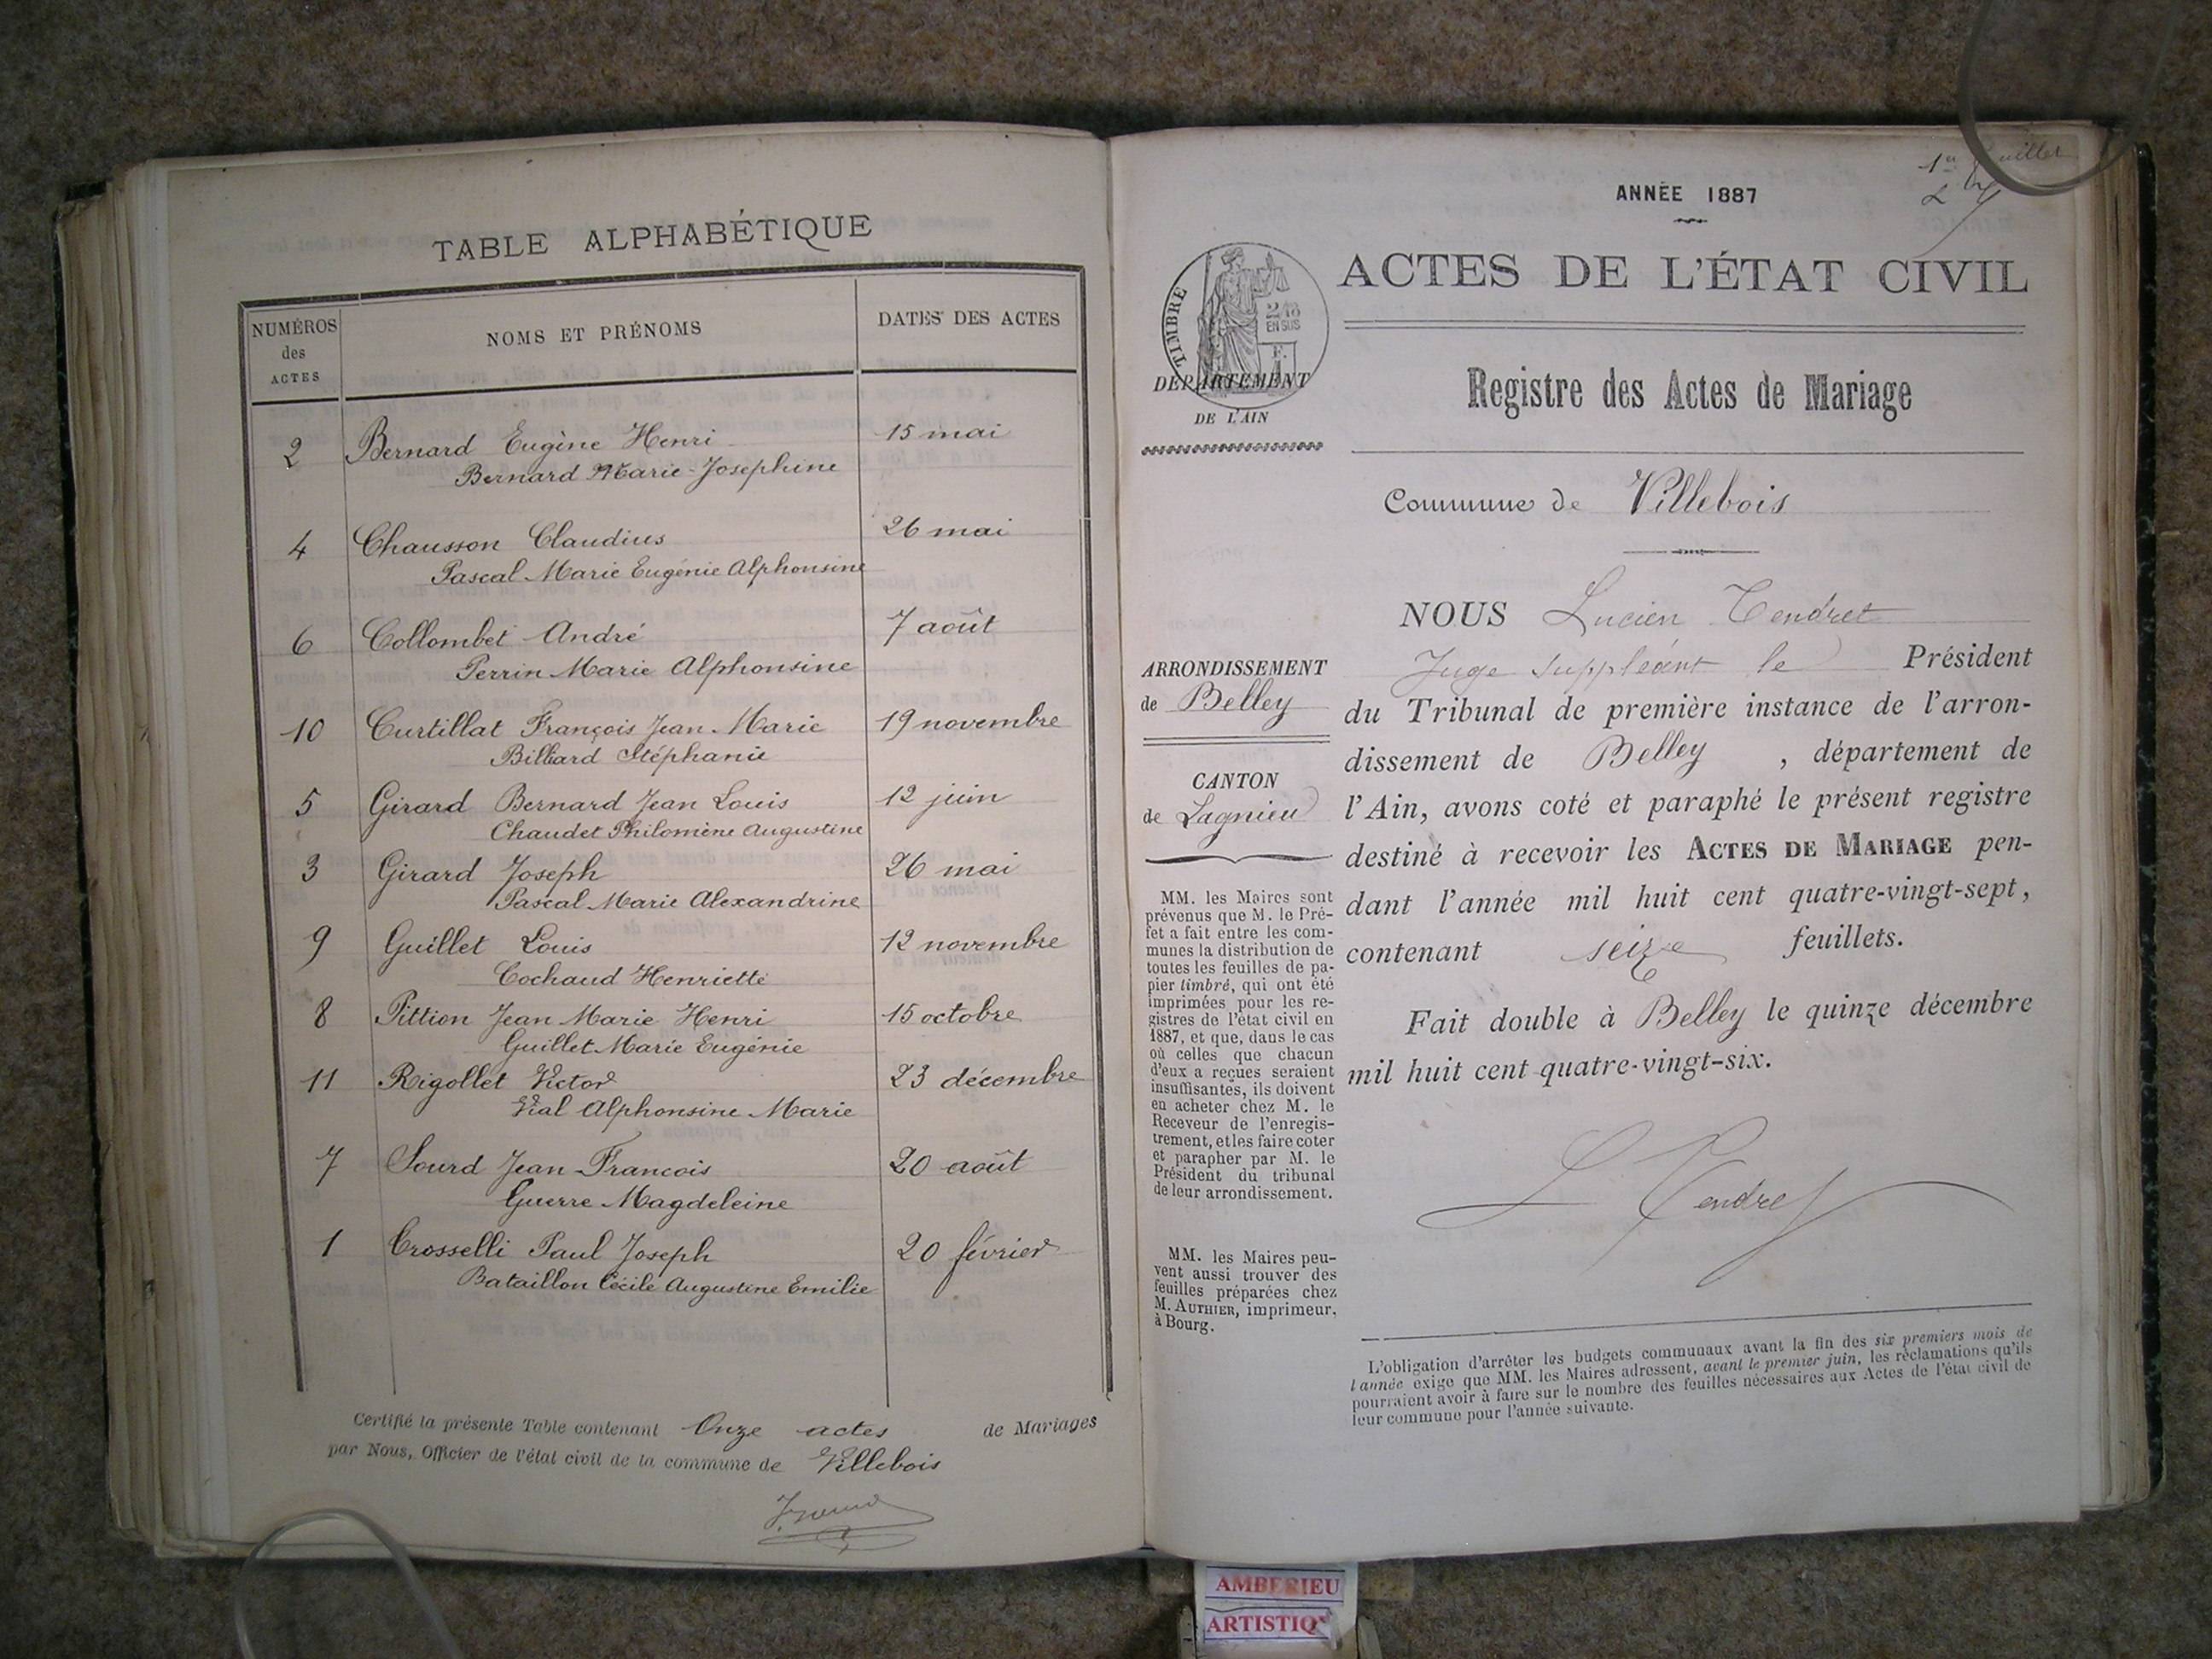 TABLE ALPHABÉTIQUE
NUMÉROS des ACTES
NOMS ET PRÉNOMS
DATES DES ACTES
2 Bernard Eugène Henri 15 mai
Bernard Marie-Josephine
4 Chausson Claudius 26 mai
Pascal Marie Eugénie Alphonsine
6 Collombet André 7 août
Perrin Marie Alphonsine
10 Curtillat François Jean Marie 19 novembre
Billiard Stéphanie
5 Girard Bernard Jean Louis 12 juin
Chaudet Philomène Augustine
3 Girard Joseph 26 mai
Pascal Marie Alexandrine
9 Guillet Louis 12 novembre
Cochaud Henriette
8 Pittion Jean Marie Henri 15 octobre
Guillet Marie Eugénie
11 Rigollet Victor 23 décembre
Vial Alphonsine Marie
7 Sourd Jean François 20 août
Guerre Magdeleine
1 Crosselli Paul Joseph 20 février
Bataillon Cécile Augustine Emilie
Certifié la présente Table contenant Onze actes de Mariages
par Nous, Officier de l'état civil de la commune de Villebois
1er feuillet
ANNÉE 1887
TIMBRE
2/10
EN SUS
ACTES DE L'ÉTAT CIVIL
DÉPARTEMENT
DE L'AIN
Registre des Actes de Mariage
Commune de Villebois
NOUS Lucien Tendret
Juge suppléant le Président
du Tribunal de première instance de l'arron-
dissement de Belley, département de
l'Ain, avons coté et paraphé le présent registre
destiné à recevoir les ACTES DE MARIAGE pen-
dant l'année mil huit cent quatre-vingt-sept,
contenant seize feuillets.
Fait double à Belley le quinze décembre
mil huit cent quatre-vingt-six.
L Tendret
ARRONDISSEMENT
de Belley
CANTON
de Lagnieu
MM. les Maires sont
prévenus que M. le Pré-
fet a fait entre les com-
munes la distribution de
toutes les feuilles de pa-
pier timbré, qui ont été
imprimées pour les re-
gistres de l'état civil en
1887, et que, dans le cas
où celles que chacun
d'eux a reçues seraient
insuffisantes, ils doivent
en acheter chez M. le
Receveur de l'enregis-
trement, et les faire coter
et parapher par M. le
Président du tribunal
de leur arrondissement.
MM. les Maires peu-
vent aussi trouver des
feuilles préparées chez
M. AUTHIER, imprimeur,
à Bourg.
L'obligation d'arrêter les budgets communaux avant la fin des six premiers mois de
l'année exige que MM. les Maires adressent, avant le premier juin, les réclamations qu'ils
pourraient avoir à faire sur le nombre des feuilles nécessaires aux Actes de l'état civil de
leur commune pour l'année suivante.
AMBERIEU
ARTISTIQ